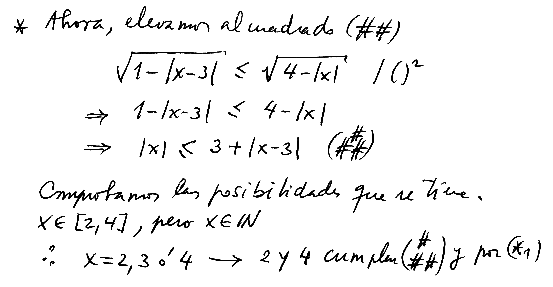 * Ahora, elevamos al cuadrado (##)
√1-|x-3| ≤ √4-|x| / ()²
⇒ 1-|x-3| ≤ 4-|x|
⇒ |x| ≤ 3+|x-3| (###)
Comprobamos las posibilidades que se tiene.
x∈[2,4], pero x∈IN
∴ x=2,3 ó 4 → 2 y 4 cumplen (###) y por (*1)